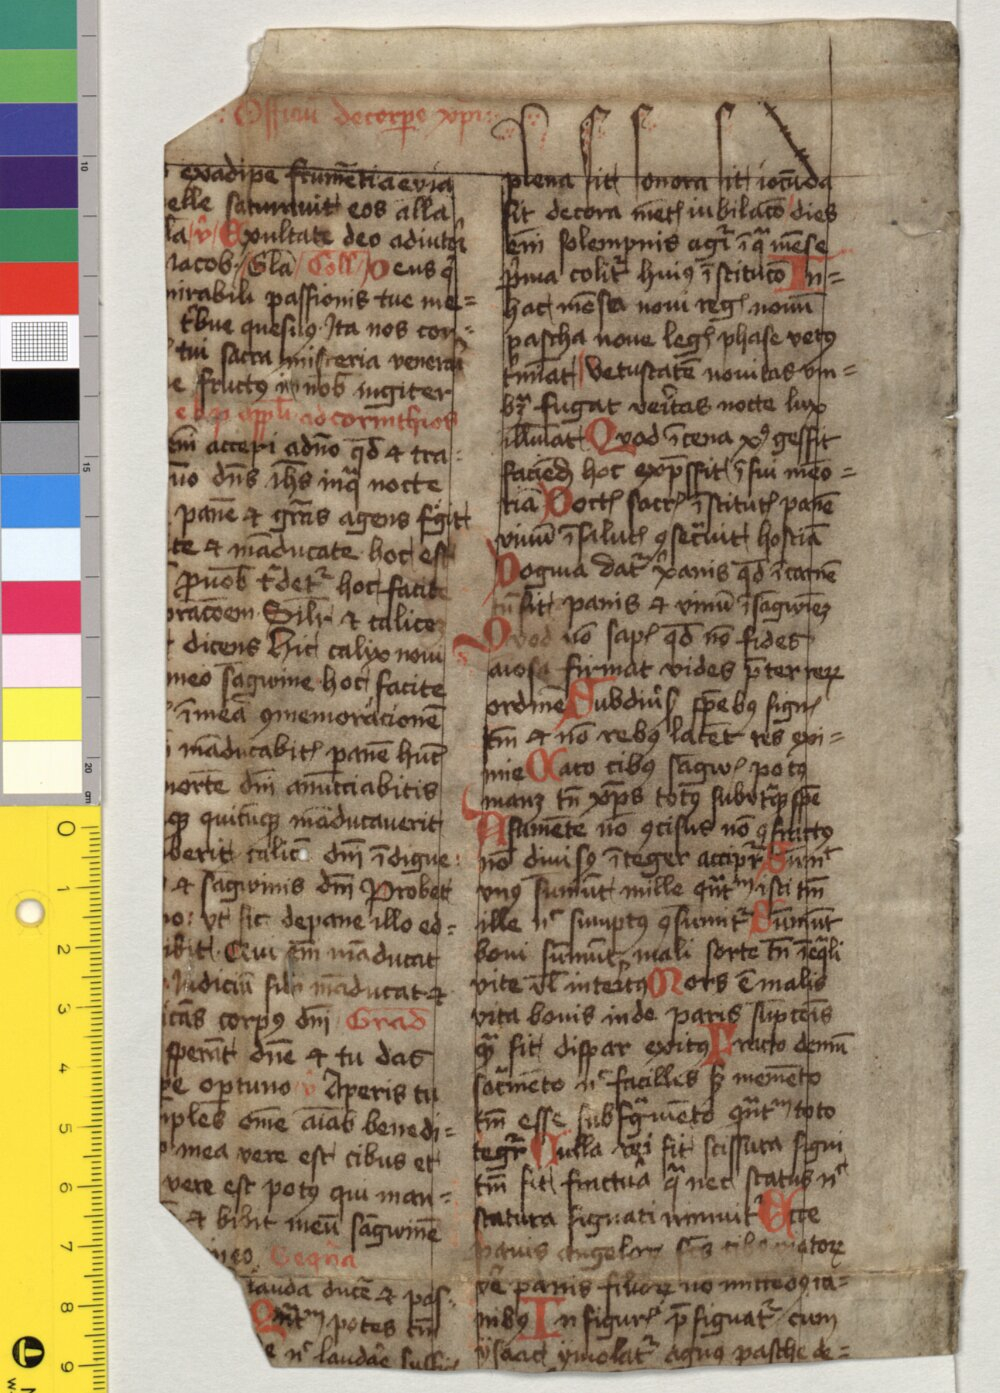 Officiu de corpe xpi
exadipe frumētia evia
elle saturavit eos alla
la v Exultate deo adiutori
iacob Gla Coll Deus q
mirabili passionis tue me=
tbue quesuꝰ Ita nos cor=
tui sacra misteria venerari
e fructꝰ in nob iugiter
ad corinthios
em accepi adno qd & tra=
no dns ihs in qa nocte
panē & gras agens fgit
te & māducate hoc est
pro vob tdetr hoc facite
oracoem Silr & calice
dicens hic calix novi
meo sagwine hoc facite
ī meā ꝯmemoracionē
māducabitis panē hūc
morte dni anūciabitis
qꝫ quicūqꝫ māducaverit
berit calicē dni īdigne
& sagwinis dni Probet
o: vt sic de pane illo ed=
ibit Qui em māducat
Iudiciū sibi māducat &
icās corpꝰ dni Grad
sperāt dne & tu das
pe optuno v Aperis tu
mples ome aiab benedi=
mea vere est cibus et
vere est potꝰ qui man=
& bibit meū sagwinē
meo Seqna
lauda ducē & pas
Qntm potes tm
e nc laudāe suffi
plena sit sonora sit iocūda
sit decora mēt iubilaco dies
em solempnis agit ī qa mēse
pma colit huiꝰ īstituco In=
hac mēsa novi reg novū
pascha nove leg phase vetꝰ
tminat Vetustatē novitas vm=
bꝫ fugat veritas nocte lux
illūiat Quod ī cena xꝰ gessit
faciēd hoc exp̄ssit ī sui meo=
riā Doct sacr īstitut panē
vinū ī salut ꝯsecuit hostiā
Dogma dat xanis qd ī carnē
tnsit panis & vinū ī sagwiez
Quod nō sap qd nō fides
aiosa firmat vides pter rerꝫ
ordinē Sub divs spebꝰ sign
tm & nō rebꝰ latēt res exi=
mie Caro cibꝰ sagw potꝰ
manꝫ tn xps totꝰ sub utqꝫ spe
A sumēte nō ꝯcisus nō ꝯfractꝰ
nō divisꝰ īteger accipr Sumit
vnꝰ sumūt mille qntm isti tm
ille nc sumptꝰ ꝯsumit Sumūt
boni sumūt mali sorte tn ieqli
vite vl interitꝰ Mors ē malis
vita bonis inde paris sūpcois
qa sit dispar exitꝰ Fracto demū
sacmēto nc facilles sꝫ memēto
tm esse sub fgmēto qntm toto
tegr Nulla rei fit scissura signi
tm fit fractua qa nec status nc
statura signati minuit Ecce
panis angelor fcs cibꝰ viatorꝫ
ve panis filiorꝫ nō mittēdꝰ ca=
nibꝰ In figur pfiguat cum
ysaac ymolat agnꝰ pasche de=